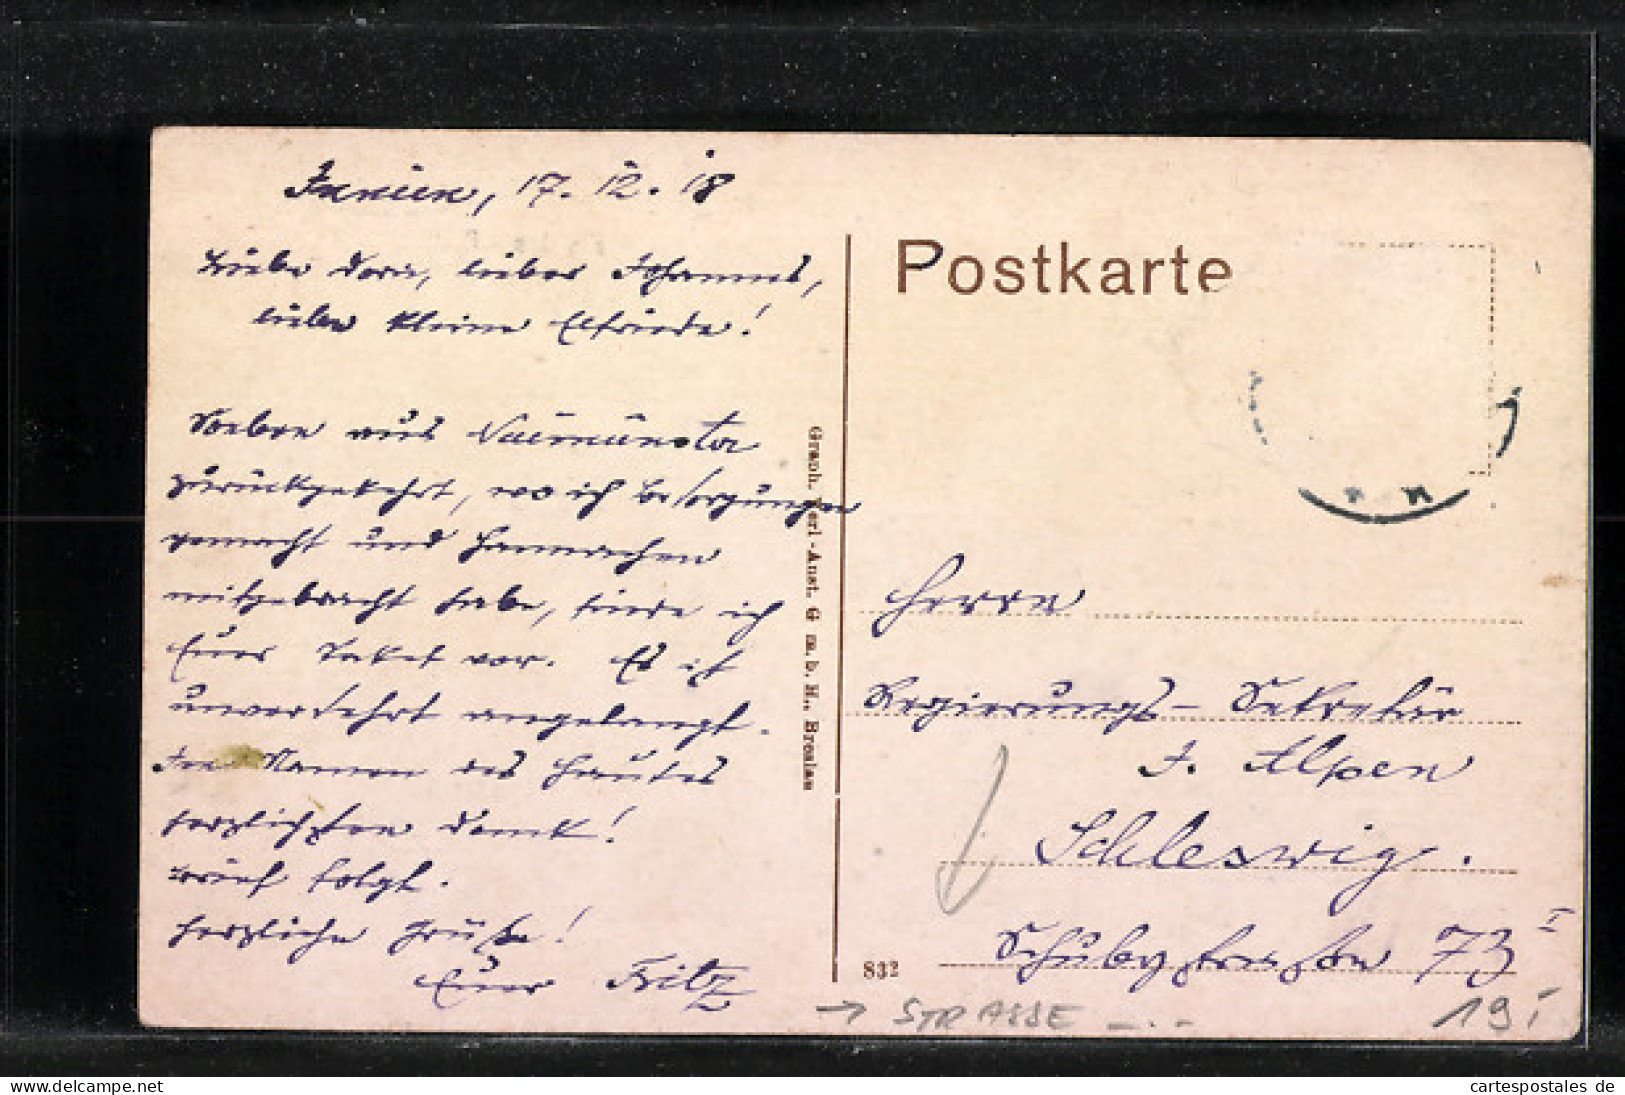 17. 12. 18
Liebe Dora, lieber Johannes,
liebe kleine Elfriede!
Soeben aus Neumünster
zurückgekehrt, wo ich Besorgungen
gemacht und
mitgebracht habe, finde ich
Euer Paket vor. Es ist
unversehrt angelangt.
Im Namen des Hauses
herzlichsten Dank!
Brief folgt.
Herzliche Grüße!
Euer Fritz
Graph. Verl.-Anst. G. m. b. H., Breslau
Postkarte
Herrn
Regierungs-Sekretär
J. Alpen
Schleswig.
Schubystraße 73 I
832
→ STRASSE
19
cartespostales de